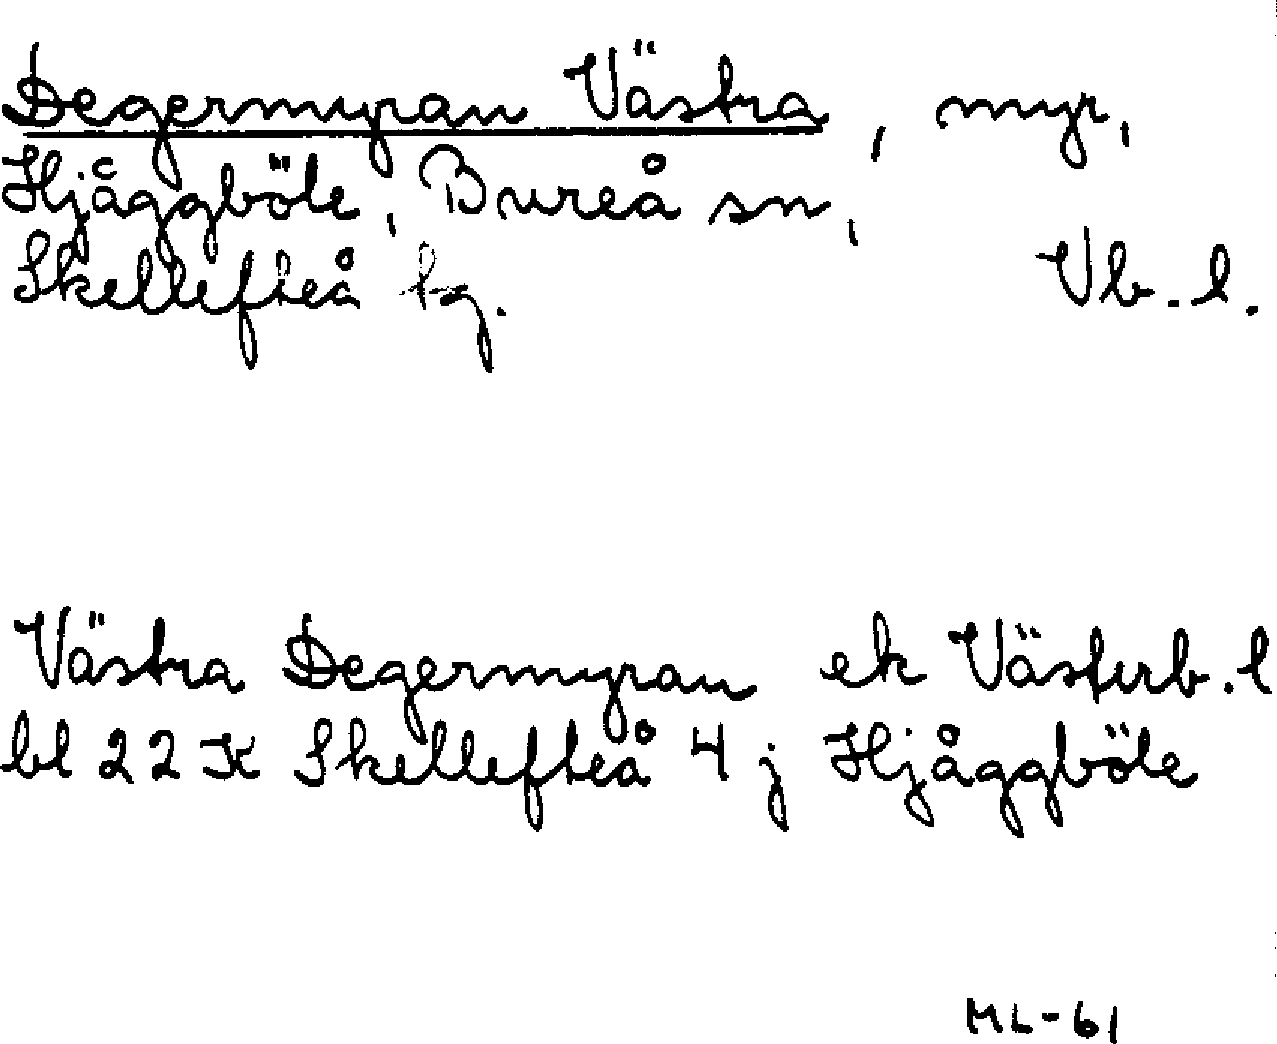 Degermyran Västra, myr,
Hjåggböle, Bureå sn,
Skellefteå tg. Vb. l.
Västra Degermyran ek Västerb. l
bl 22 K Skellefteå 4 j Hjåggböle
ML-61